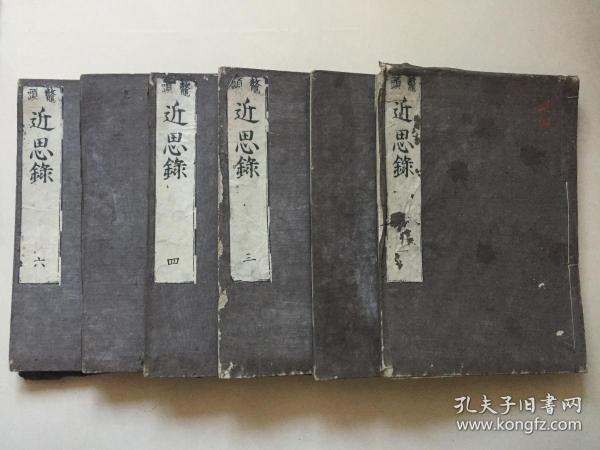 鼇頭
近思錄
鼇頭
近思錄
三
鼇頭
近思錄
四
鼇頭
近思錄
六
孔夫子旧书网
www.kongfz.com